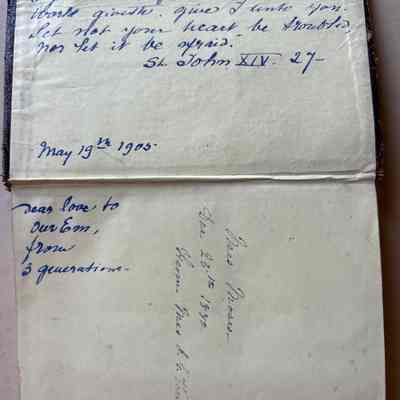 world giveth, give I unto you.
Let not your heart be troubled
nor let it be afraid."
St. John XIV. 27-
May 19th 1905.
Dear love to
our Em,
from
3 generations.
Mrs Moses.
Dec 25th 1890
From Mrs